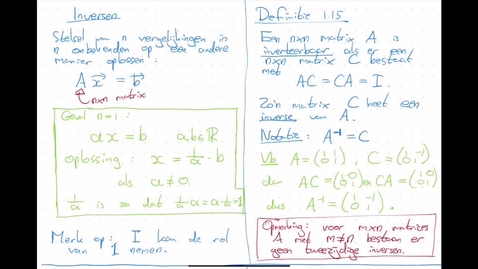 Inversen
Stelsel van n vergelijkingen in
n onbekenden op een andere
manier oplossen:
A x⃗ = b⃗
n×n matrix
Geval n=1:
ax = b   a,b∈ℝ
oplossing: x = 1/a · b
als a≠0.
1/a is zo dat 1/a·a = a·1/a = 1
Merk op: I kan de rol
van 1 nemen.
Definitie 1.15
Een n×n matrix A is
inverteerbaar als er een
n×n matrix C bestaat
met
AC = CA = I.
Zo'n matrix C heet een
inverse van A.
Notatie: A⁻¹ = C
Vb A = (1 1; 0 1), C = (1 -1; 0 1)
dan AC = (1 0; 0 1) en CA = (1 0; 0 1)
dus A⁻¹ = (1 -1; 0 1).
Opmerking: voor m×n matrices
A met m≠n bestaan er
geen tweezijdige inversen.